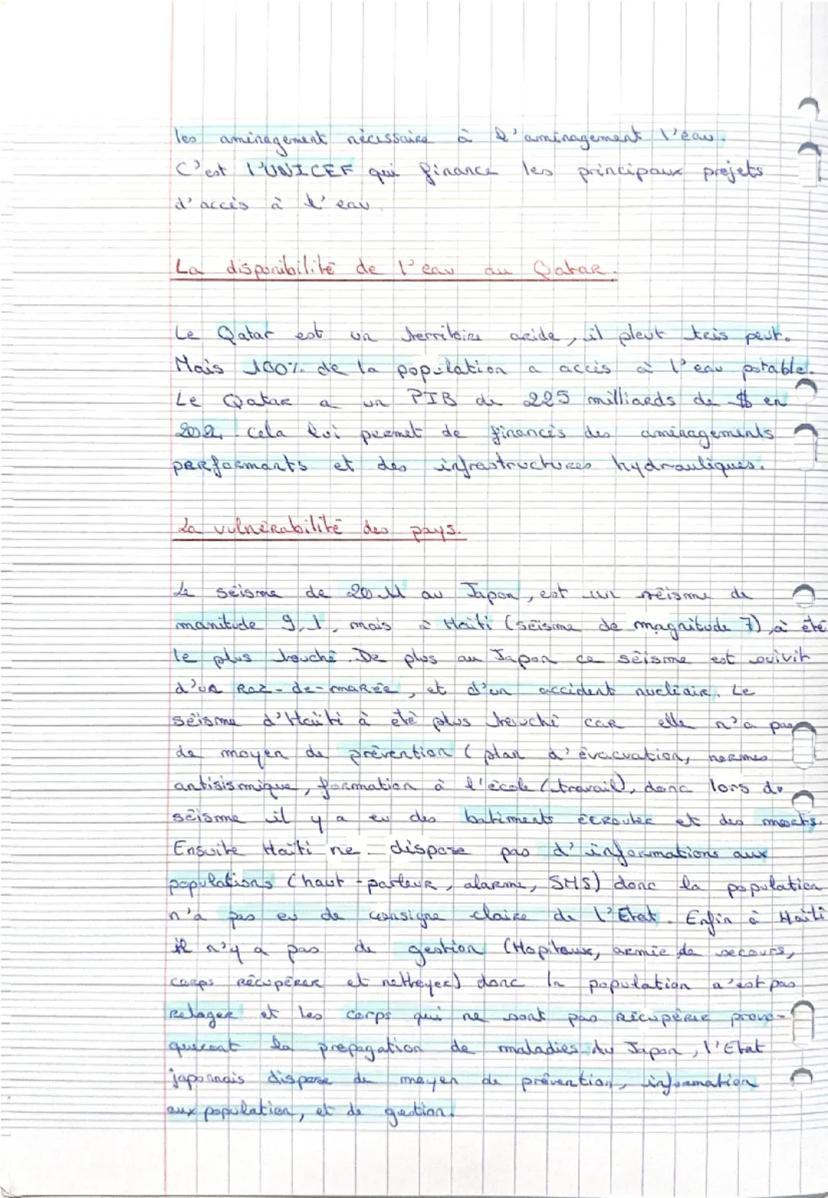 les aminagement nécessaire à l'aminagement l'eau.
C'est l'UNICEF qui finance les principaux projets
d'accès à l'eau.
La disponibilité de l'eau au Qatar.
Le Qatar est un territoire aride, il pleut très peut.
Mais 100% de la population a accès à l'eau potable.
Le Qatar a un PIB de 225 milliards de $ en
202. Cela lui permet de financés des aminagements
performants et des infrastructures hydrauliques.
La vulnérabilité des pays.
Le séisme de 2011 au Japon, est un séisme de
manitude 9,1, mais à Haïti (séisme de magnitude 7) à été
le plus touché. De plus au Japon ce séisme est suivit
d'un Raz-de-marée, et d'un accident nucléaire. Le
séisme d'Haïti à été plus touché car elle n'a pas
de moyen de prévention (plan d'évacuation, normes
antisismique, formation à l'école/travail), donc lors du
séisme il y a eu des batiments écrouler et des morts.
Ensuite Haïti ne dispose pas d'informations aux
populations (haut-parleur, alarme, SMS) donc la population
n'a pas eu de consigne claire de l'Etat. Enfin à Haïti
il n'y a pas de gestion (Hopitaux, armée de secours,
corps récupérer et nettoyer) donc la population n'est pas
reloger et les corps qui ne sont pas récupérer provo-
queront la propagation de maladies. Au Japon, l'Etat
japonnais dispose de moyen de prévention, information
aux population, et de gestion.